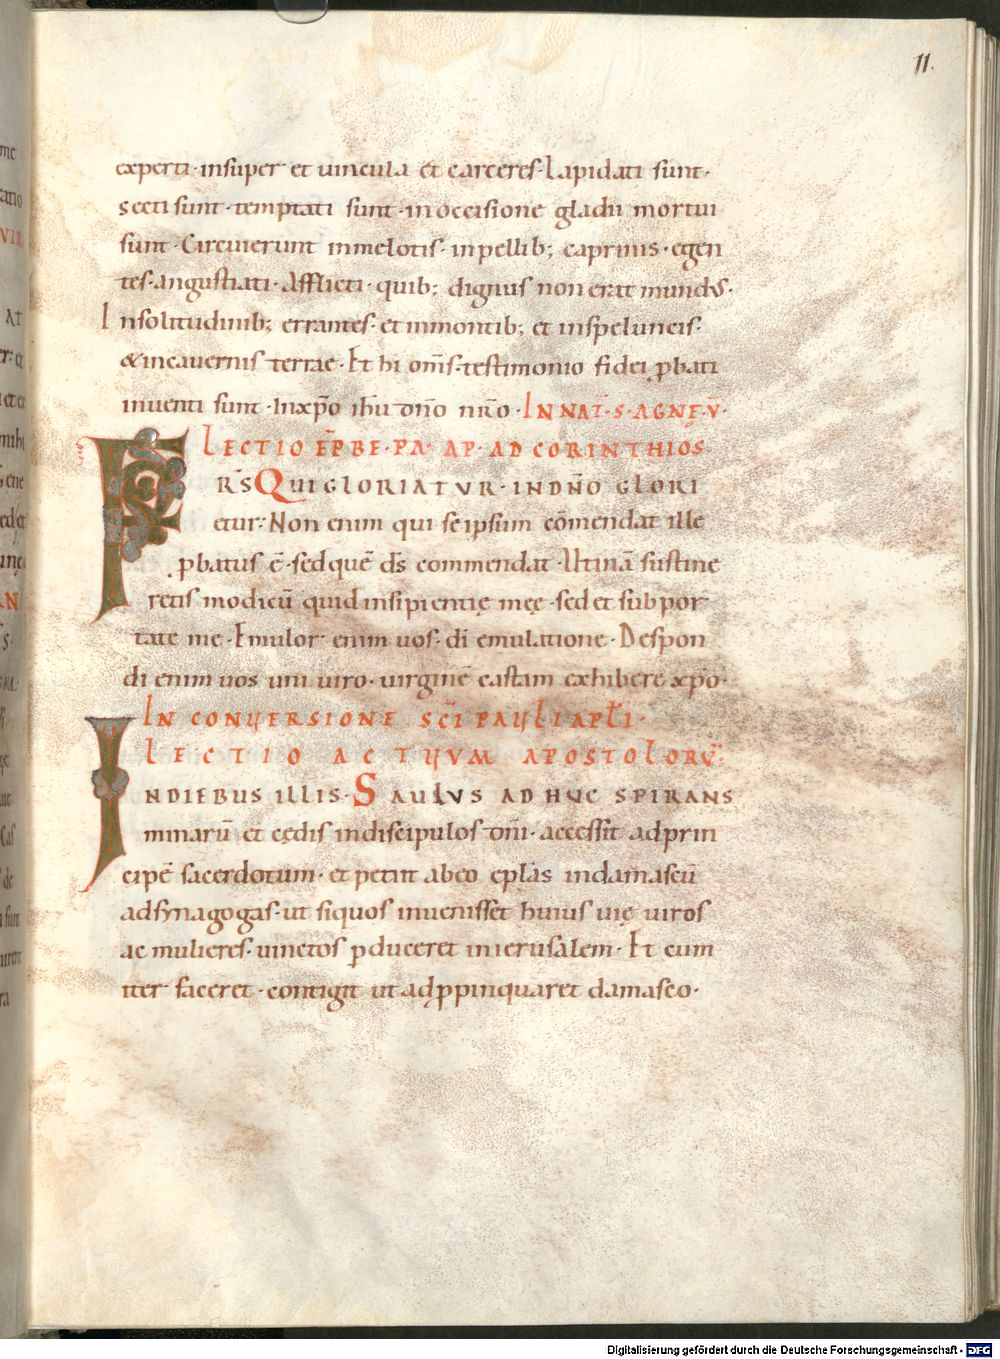 11.
experti·insuper et uincula et carceres·Lapidati sunt·
secti sunt·temptati sunt·inoccisione gladii mortui
sunt·Circuierunt inmelotis·inpellib; caprinis·egen
tes·angustiati·Afflicti·quib; dignus non erat mundus·
Insolitudinib; errantes·et inmontib; et inspeluncis·
&incauernis terrae·Et hi om̄s·testimonio fidei ꝓbati
inuenti sunt·Inxp̄o ihū dn̄o nr̄o·IN NAT̄·S·AGNĘ·V̄·
LECTIO EP̄·BE·PA·AP·AD CORINTHIOS·
FRS̄ QUI GLORIATUR·IN DN̄O GLORI
etur:Non enim qui seipsum cōmendat ille
ꝓbatus ē·sed quē ds̄ commendat·Utinā sustine
retis modicū quid insipientię meę·sed et subpor
tate me·Emulor enim uos·dī emulatione·Despon
di enim uos uni uiro·uirginē castam exhibere xp̄o·
IN CONUERSIONE SC̄I PAULI APL̄I·
LECTIO ACTUUM APOSTOLORŪ:
IN DIEBUS ILLIS·SAULUS ADHUC SPIRANS
minarū et cędis indiscipulos dn̄i·accessit adprin
cipē sacerdotum·et petiit abeo epl̄as indamascū
adsynagogas·ut siquos inuenisset huius uię uiros
ac mulieres·uinctos ꝑduceret inierusalem·Et cum
iter faceret·contigit ut adꝓpinquaret damasco·
Digitalisierung gefördert durch die Deutsche Forschungsgemeinschaft - DFG